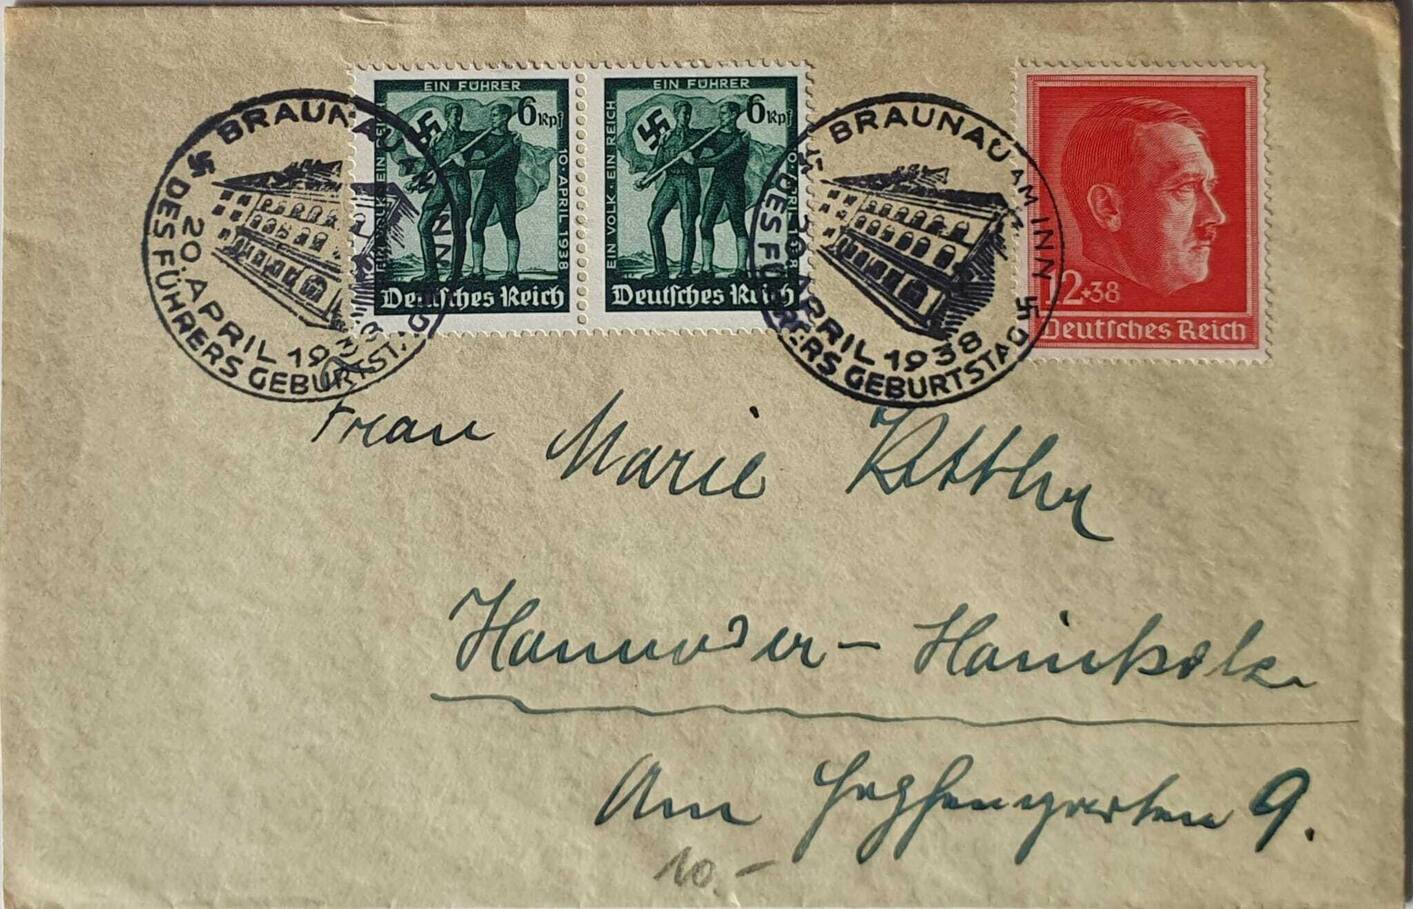 BRAUNAU AM INN
20. APRIL 1938
DES FÜHRERS GEBURTSTAG
EIN FÜHRER
6 Rpf
EIN VOLK · EIN REICH
10 · APRIL 1938
Deutsches Reich
EIN FÜHRER
6 Rpf
EIN VOLK · EIN REICH
10 · APRIL 1938
Deutsches Reich
BRAUNAU AM INN
20. APRIL 1938
DES FÜHRERS GEBURTSTAG
12+38
Deutsches Reich
Frau Marie
Hannover - Hainholz
Am 9.
10.-